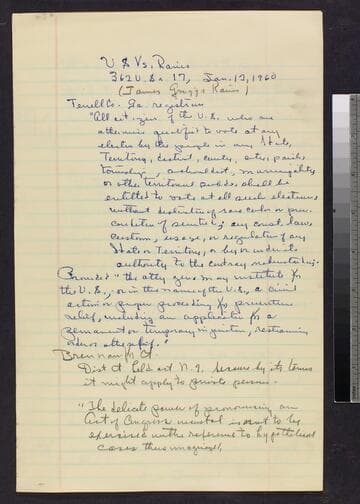 U S Vs. Raines
362 U.S. 17, Jan. 13, 1960
(James Griggs Raines)
Terrell Co. Ga. registrars
"All citizens of the U.S. who are
otherwise qualified to vote at any
election by the people in any State,
Territory, district, county, city, parish,
township, school dist, municipality
or other territorial subdiv. shall be
entitled to vote at all such elections
without distinction of race color or prev.
condition of servitude; any const. law,
custom, usage, or regulation of any
State or Territory, or by or under its
authority to the contrary notwithstanding.
Provided "the atty gen. may institute for
the U.S., or in the name of the U.S., a civil
action or proper proceeding for preventive
relief, including an application for a
permanent or temporary injunction, restraining
order or other
Brennan
Dist Ct held act because by its terms
it might apply to private persons.
"The delicate power of pronouncing an
Act of Congress is not to be
exercised with reference to hypothetical
cases thus imagined,